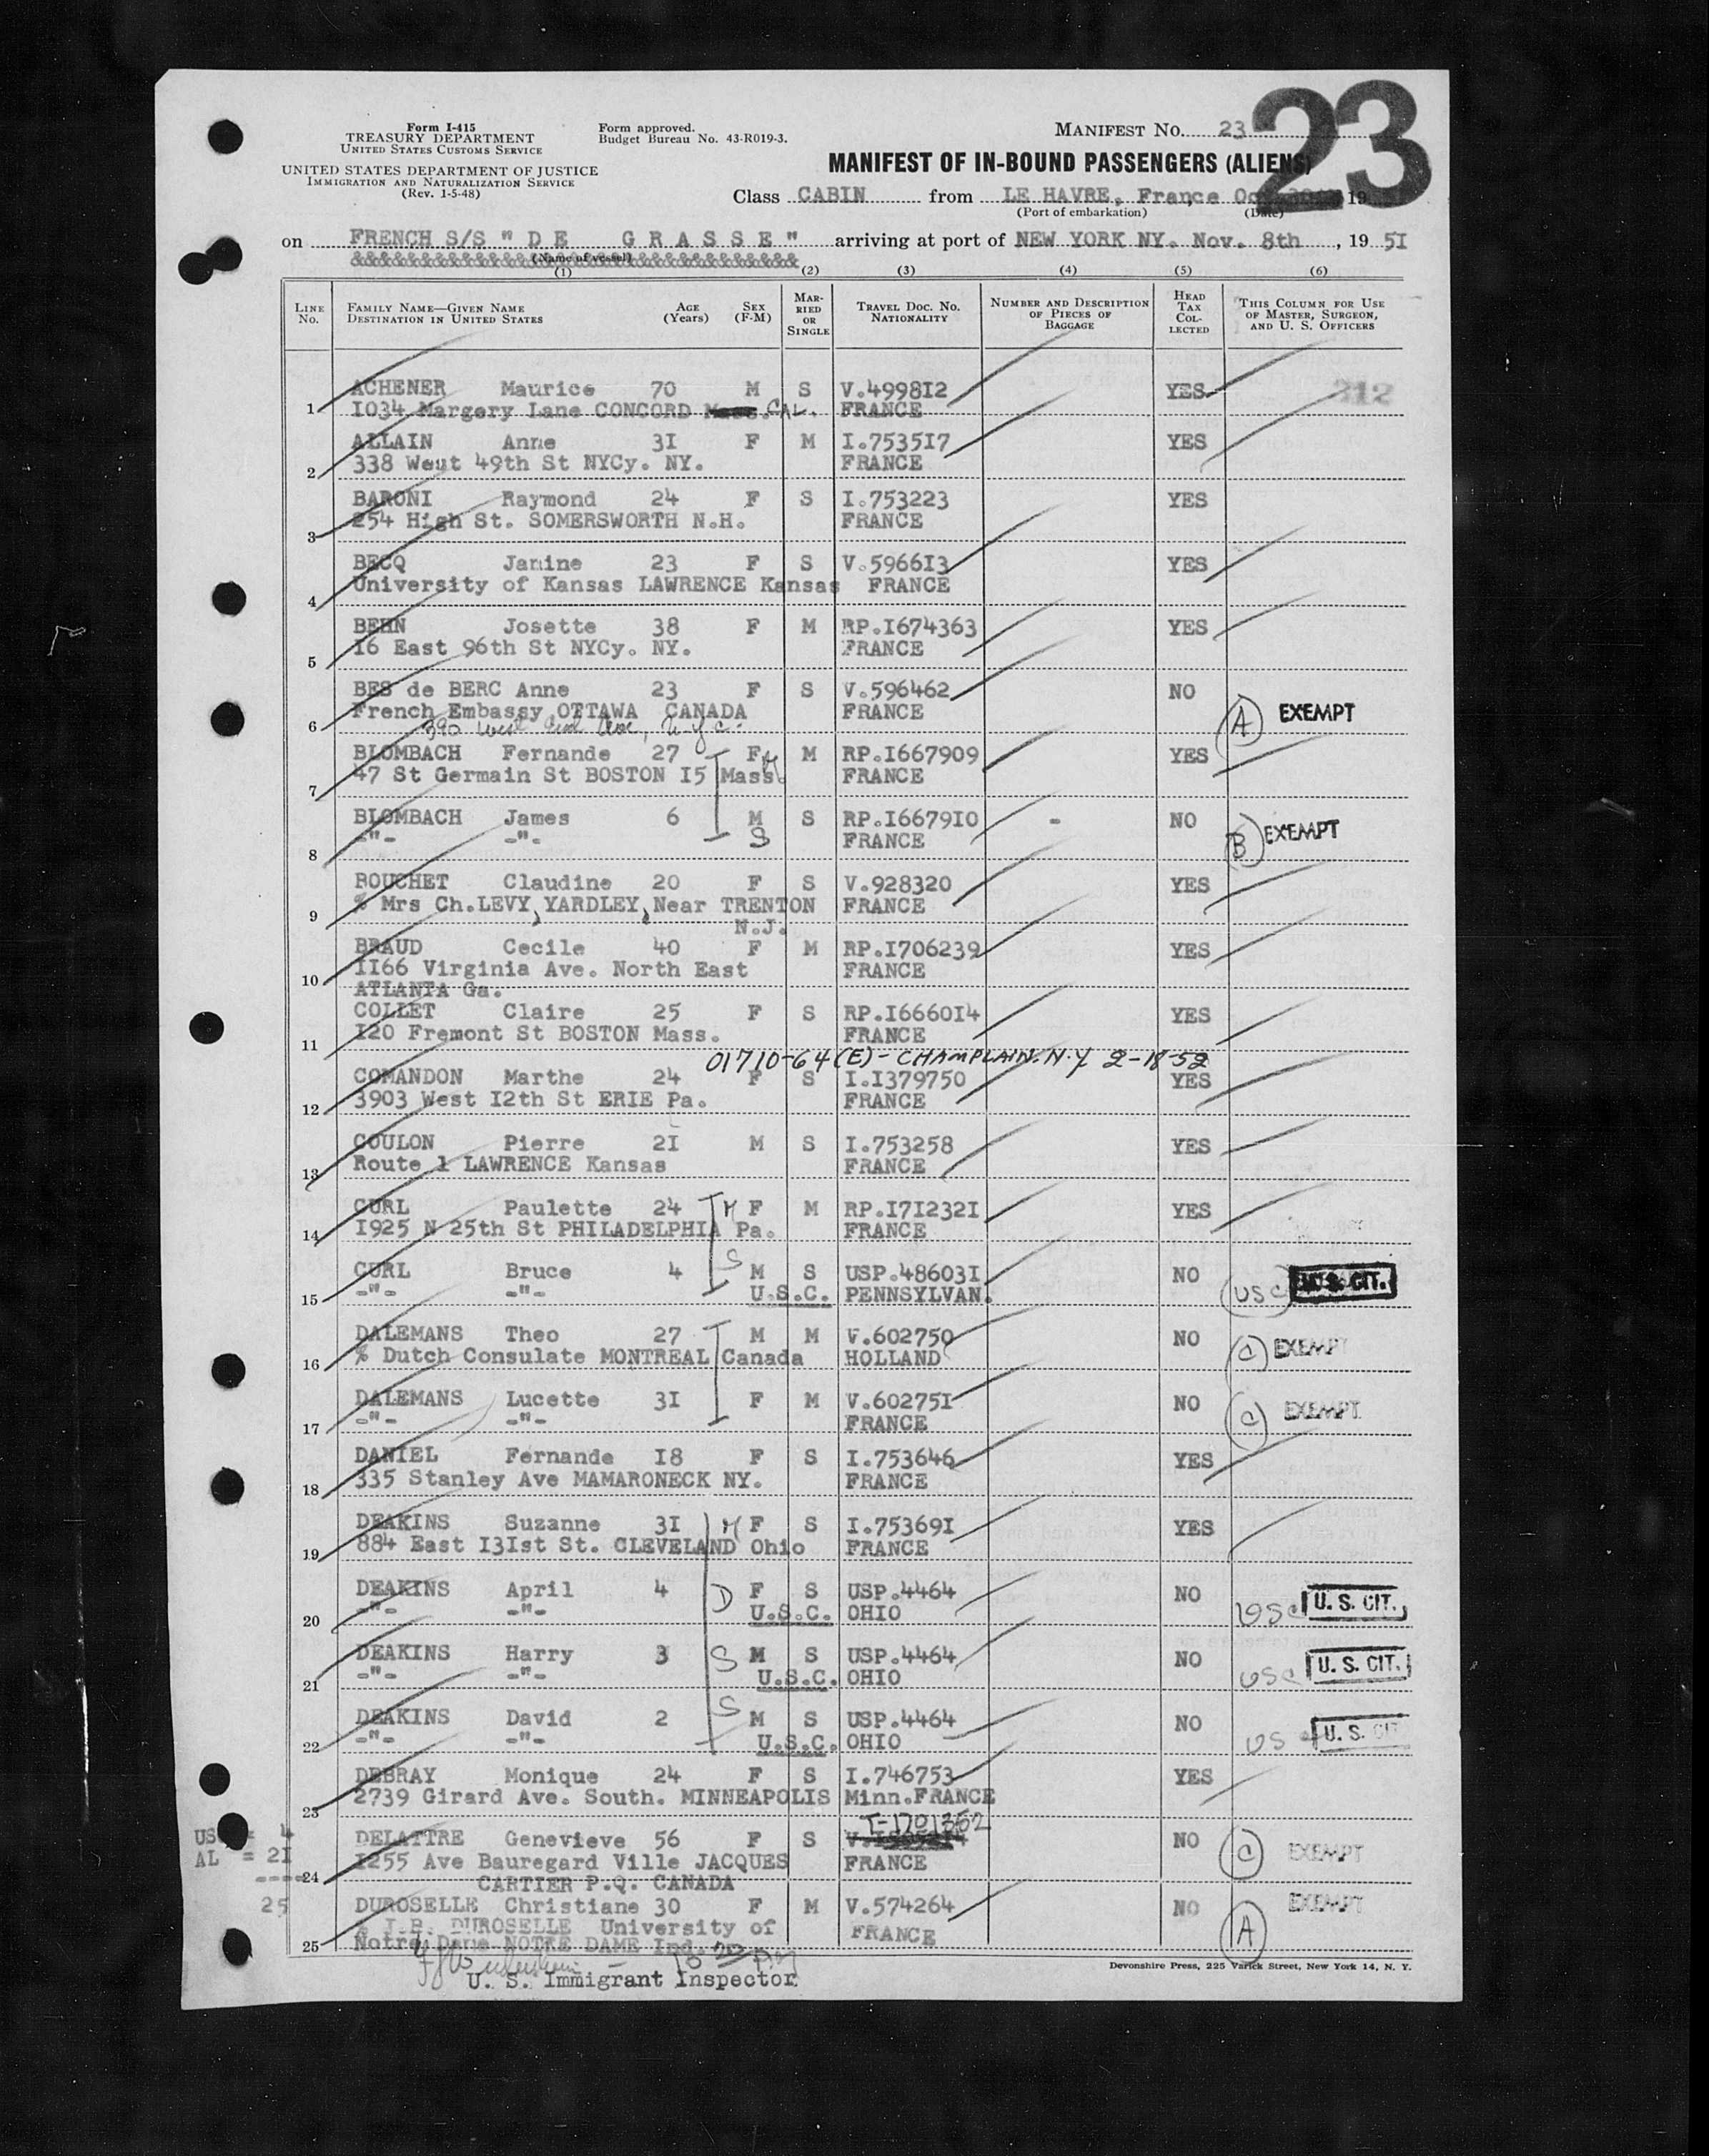 23
Form I-415
TREASURY DEPARTMENT
UNITED STATES CUSTOMS SERVICE
UNITED STATES DEPARTMENT OF JUSTICE
IMMIGRATION AND NATURALIZATION SERVICE
(Rev. 1-5-48)
Form approved.
Budget Bureau No. 43-R019-3.
MANIFEST No. 23
MANIFEST OF IN-BOUND PASSENGERS (ALIENS)
Class CABIN from LE HAVRE, France 19
(Port of embarkation) (Date)
on FRENCH S/S " D E G R A S S E " arriving at port of NEW YORK NY. Nov. 8th , 19 5I
(Name of vessel)
(1) (2) (3) (4) (5) (6)
LINE No. FAMILY NAME—GIVEN NAME DESTINATION IN UNITED STATES AGE (Years) SEX (F-M) MARRIED OR SINGLE TRAVEL DOC. No. NATIONALITY NUMBER AND DESCRIPTION OF PIECES OF BAGGAGE HEAD TAX COLLECTED THIS COLUMN FOR USE OF MASTER, SURGEON, AND U. S. OFFICERS
ACHENER Maurice 70 M S V.4998I2 YES 312
1 I034 Margery Lane CONCORD CAL. FRANCE
ALLAIN Anne 3I F M I.7535I7 YES
2 338 West 49th St NYCy. NY. FRANCE
BARONI Raymond 24 F S I.753223 YES
3 254 High St. SOMERSWORTH N.H. FRANCE
BECQ Janine 23 F S V.5966I3 YES
4 University of Kansas LAWRENCE Kansas FRANCE
BEHN Josette 38 F M RP.I674363 YES
5 I6 East 96th St NYCy. NY. FRANCE
BES de BERC Anne 23 F S V.596462 NO
6 French Embassy OTTAWA CANADA FRANCE A EXEMPT
390 West End Ave, N.Y.C.
BLOMBACH Fernande 27 F M RP.I667909 YES
7 47 St Germain St BOSTON I5 Mass. FRANCE
BLOMBACH James 6 M S RP.I6679I0 - NO
8 -"- -"- S FRANCE B EXEMPT
BOUCHET Claudine 20 F S V.928320 YES
9 % Mrs Ch.LEVY, YARDLEY, Near TRENTON FRANCE
N.J.
BRAUD Cecile 40 F M RP.I706239 YES
10 II66 Virginia Ave. North East FRANCE
ATLANTA Ga.
COLLET Claire 25 F S RP.I6660I4 YES
11 I20 Fremont St BOSTON Mass. FRANCE
01710-64 (E) - CHAMPLAIN. N.Y 2-18-52
COMANDON Marthe 24 F S I.I379750 YES
12 3903 West I2th St ERIE Pa. FRANCE
COULON Pierre 2I M S I.753258 YES
13 Route 1 LAWRENCE Kansas FRANCE
CURL Paulette 24 F M RP.I7I232I YES
14 I925 N 25th St PHILADELPHIA Pa. FRANCE
CURL Bruce 4 S M S USP.48603I NO
15 -"- -"- U.S.C. PENNSYLVAN. USC U.S. CIT.
DALEMANS Theo 27 M M V.602750 NO
16 % Dutch Consulate MONTREAL Canada HOLLAND C EXEMPT
DALEMANS Lucette 3I F M V.60275I NO
17 -"- -"- FRANCE C EXEMPT
DANIEL Fernande I8 F S I.753646 YES
18 335 Stanley Ave MAMARONECK NY. FRANCE
DEAKINS Suzanne 3I F S I.75369I YES
19 884 East I3Ist St. CLEVELAND Ohio FRANCE
DEAKINS April 4 D F S USP.4464 NO
20 -"- -"- U.S.C. OHIO USC U. S. CIT.
DEAKINS Harry 3 S M S USP.4464 NO
21 -"- -"- U.S.C. OHIO USC U. S. CIT.
DEAKINS David 2 S M S USP.4464 NO
22 -"- -"- U.S.C. OHIO US U. S. CIT
DEBRAY Monique 24 F S I.746753 YES
23 2739 Girard Ave. South. MINNEAPOLIS Minn.FRANCE
T-1701352
DELATTRE Genevieve 56 F S NO
24 I255 Ave Bauregard Ville JACQUES FRANCE C EXEMPT
CARTIER P.Q. CANADA
US = 4
AL = 2I
25
DUROSELLE Christiane 30 F M V.574264 NO EXEMPT
% J.B. DUROSELLE University of FRANCE A
25 Notre Dame NOTRE DAME Ind.
U. S. Immigrant Inspector
Devonshire Press, 225 Varick Street, New York 14, N. Y.